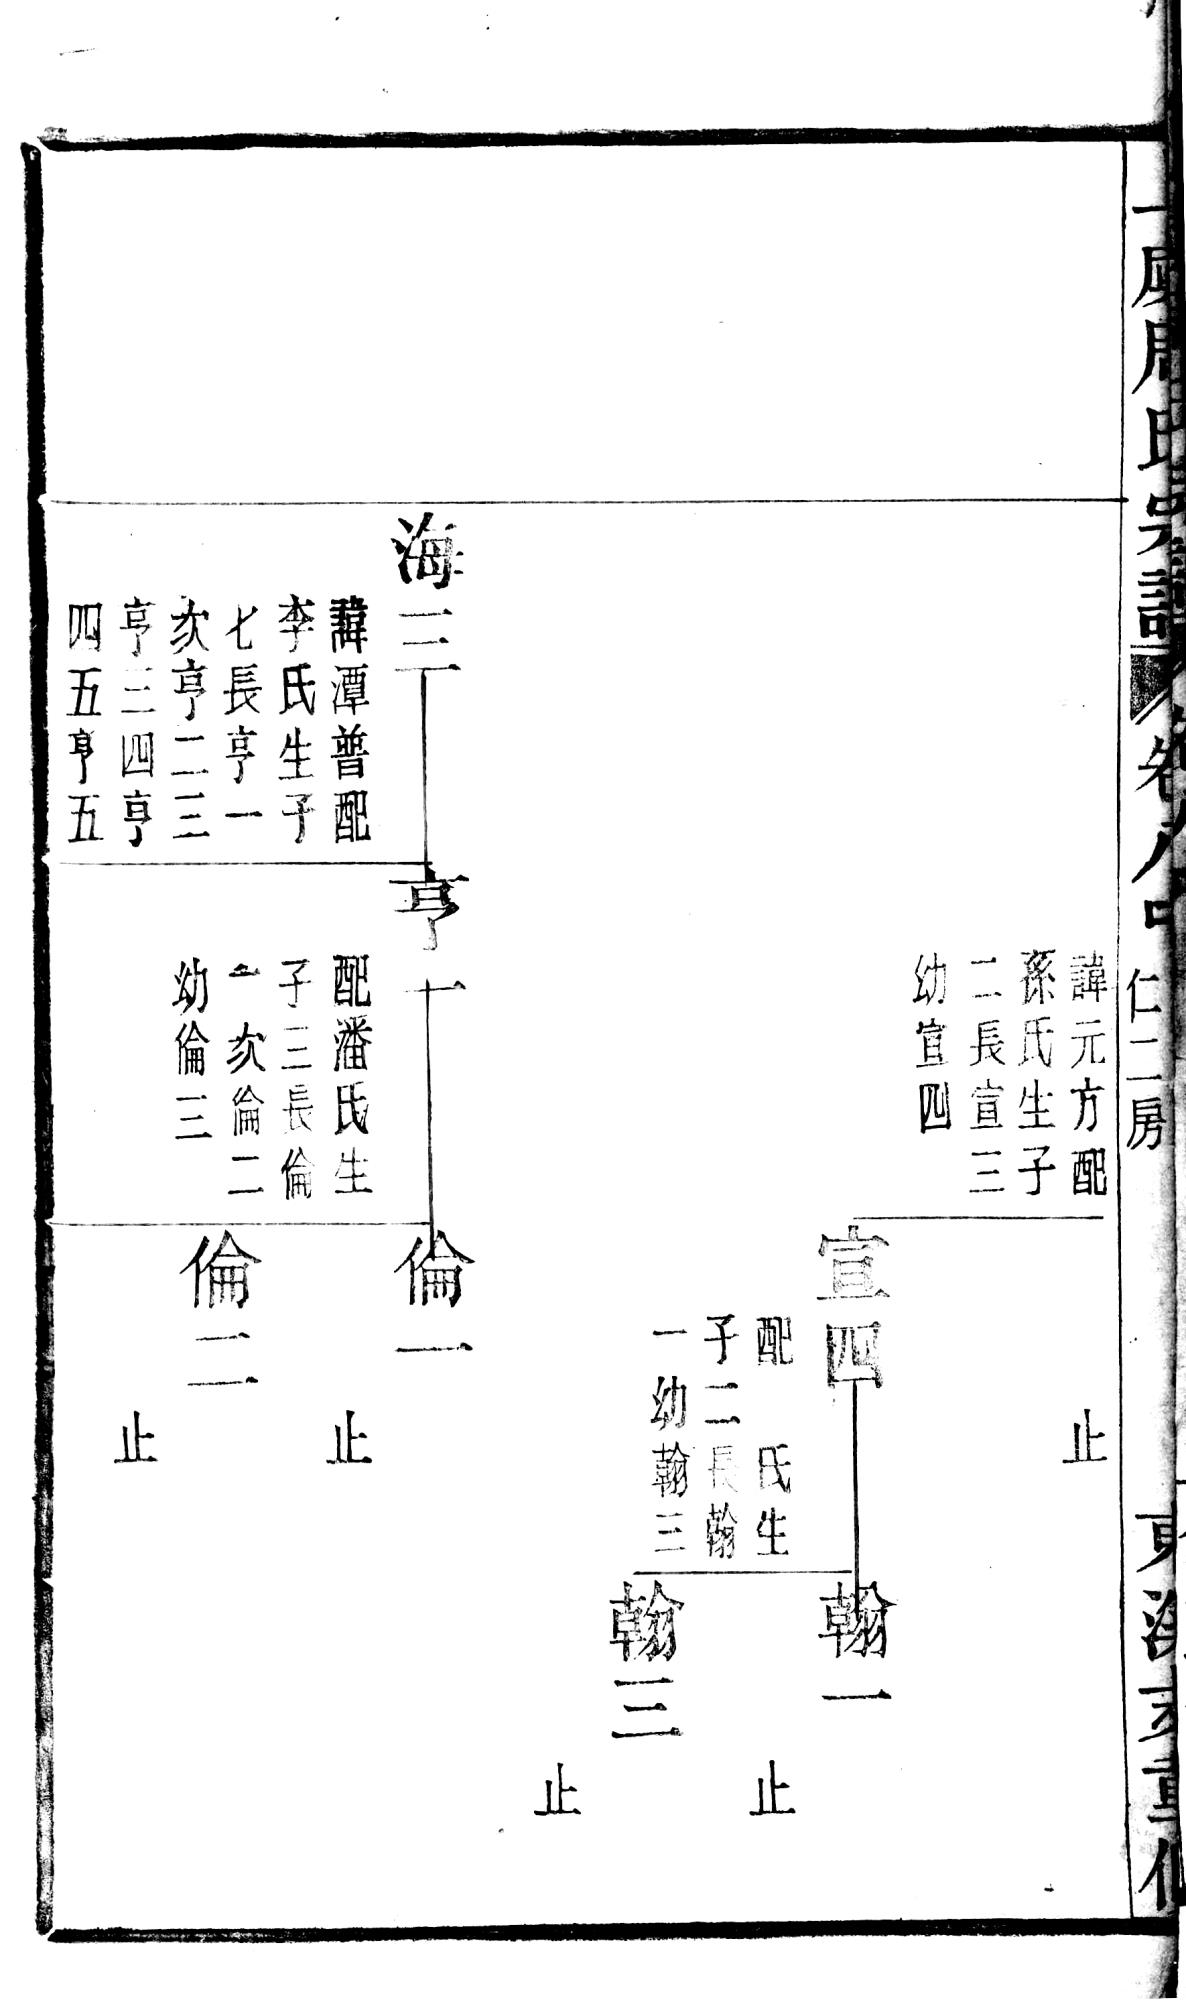 氏宗譜
卷八中
仁二房
諱元方配
孫氏生子
二長宣三
幼宣四
止
宣四
配　氏生
子二長翰
一幼翰三
翰一
止
翰三
止
海三
諱潭普配
李氏生子
七長亨一
次亨二三
亨三四亨
四五亨五
亨一
配潘氏生
子三長倫
一次倫二
幼倫三
倫一
止
倫二
止